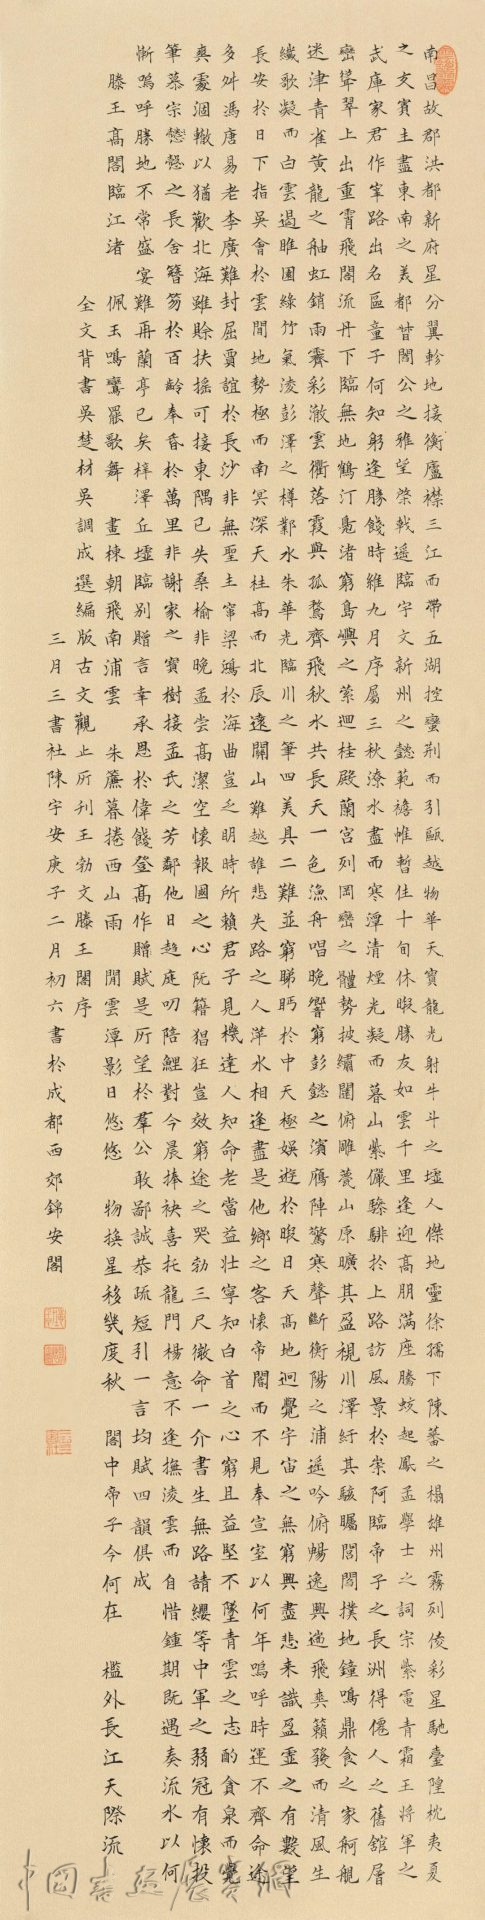 南昌故郡洪都新府星分翼軫地接衡廬襟三江而帶五湖控蠻荆而引甌越物華天寶龍光射牛斗之墟人傑地靈徐孺下陳蕃之榻雄州霧列俊彩星馳臺隍枕夷夏
之交賓主盡東南之美都督閻公之雅望棨戟遥臨宇文新州之懿範襜帷暫住十旬休暇勝友如雲千里逢迎高朋滿座騰蛟起鳳孟學士之詞宗紫電青霜王將軍之
武庫家君作宰路出名區童子何知躬逢勝餞時維九月序屬三秋潦水盡而寒潭清煙光凝而暮山紫儼驂騑於上路訪風景於崇阿臨帝子之長洲得僊人之舊館層
巒聳翠上出重霄飛閣流丹下臨無地鶴汀鳧渚窮島嶼之縈迴桂殿蘭宮列岡巒之體勢披繡闥俯雕甍山原曠其盈視川澤紆其駭矚閭閻撲地鐘鳴鼎食之家舸艦
迷津青雀黃龍之舳虹銷雨霽彩澈雲衢落霞與孤鶩齊飛秋水共長天一色漁舟唱晚響窮彭蠡之濱鴈陣驚寒聲斷衡陽之浦遥吟俯暢逸興遄飛爽籟發而清風生
纖歌凝而白雲遏睢園綠竹氣凌彭澤之樽鄴水朱華光臨川之筆四美具二難並窮睇眄於中天極娛遊於暇日天高地迥覺宇宙之無窮興盡悲來識盈虛之有數望
長安於日下指吳會於雲間地勢極而南冥深天柱高而北辰遠關山難越誰悲失路之人萍水相逢盡是他鄉之客懷帝閽而不見奉宣室以何年嗚呼時運不齊命途
多舛馮唐易老李廣難封屈賈誼於長沙非無聖主竄梁鴻於海曲豈乏明時所賴君子見機達人知命老當益壯寧知白首之心窮且益堅不墜青雲之志酌貪泉而覺
爽處涸轍以猶歡北海雖賒扶搖可接東隅已失桑榆非晚孟嘗高潔空懷報國之心阮籍猖狂豈效窮途之哭勃三尺微命一介書生無路請纓等中軍之弱冠有懷投
筆慕宗愨之長舍簪笏於百齡奉昏於萬里非謝家之寶樹接孟氏之芳鄰他日趨庭叨陪鯉對今晨捧袂喜托龍門楊意不逢撫凌雲而自惜鍾期既遇奏流水以何
慚嗚呼勝地不常盛宴難再蘭亭已矣梓澤丘墟臨别贈言幸承恩於偉餞登高作贈賦是所望於羣公敢鄙誠恭疏短引一言均賦四韻俱成
滕王高閣臨江渚 佩玉鳴鸞罷歌舞 畫棟朝飛南浦雲 朱簾暮捲西山雨 閒雲潭影日悠悠 物換星移幾度秋 閣中帝子今何在 檻外長江天際流
全文背書吳楚材吳調成選編版古文觀止所刊王勃文滕王閣序
三月三書社陳宇安庚子二月初六書於成都西郊錦安閣
中國書法展賽網